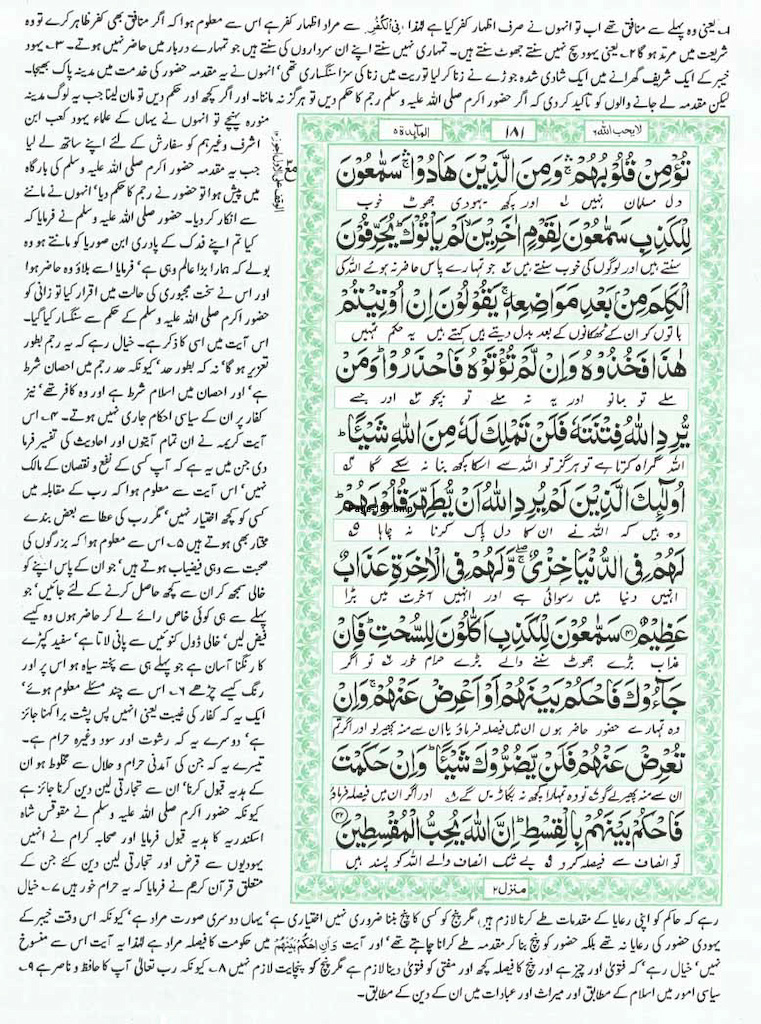 ۱۔ یعنی وہ پہلے سے منافق تھے اب تو انہوں نے صرف اظہار کفر کیا ہے لہٰذا فِی الْکُفْرِ سے مراد اظہار کفر ہے اس سے معلوم ہوا کہ اگر منافق بھی کفر ظاہر کرے تو وہ
شریعت میں مرتد ہو گا ۲۔ یعنی یہود سچ نہیں سنتے جھوٹ سنتے ہیں۔ تمہاری نہیں سنتے اپنے ان سرداروں کی سنتے ہیں جو تمہارے دربار میں حاضر نہیں ہوتے۔ ۳۔ یہود
خیبر کے ایک شریف گھرانے میں ایک شادی شدہ جوڑے نے زنا کر لیا توریت میں زنا کی سزا سنگساری تھی' انہوں نے یہ مقدمہ حضور کی خدمت میں مدینہ پاک بھیجا۔
لیکن مقدمہ لے جانے والوں کو تاکید کر دی کہ اگر حضور اکرم صلی اللہ علیہ وسلم رجم کا حکم دیں تو ہرگز نہ ماننا۔ اور اگر کچھ اور حکم دیں تو مان لینا جب یہ لوگ مدینہ
منورہ پہنچے تو انہوں نے یہاں کے علماء یہود کعب ابن
اشرف وغیرہم کو سفارش کے لئے اپنے ساتھ لے لیا
جب یہ مقدمہ حضور اکرم صلی اللہ علیہ وسلم کی بارگاہ
میں پیش ہوا تو حضور نے رجم کا حکم دیا' انہوں نے ماننے
سے انکار کر دیا۔ حضور صلی اللہ علیہ وسلم نے فرمایا کہ
کیا تم اپنے فدک کے پادری ابن صوریا کو مانتے ہو وہ
بولے کہ ہمارا بڑا عالم وہی ہے' فرمایا اسے بلاؤ وہ حاضر ہوا
اور اس نے سخت مجبوری کی حالت میں اقرار کیا تو زانی کو
حضور اکرم صلی اللہ علیہ وسلم کے حکم سے سنگسار کیا گیا۔
اس آیت میں اسی کا ذکر ہے۔ خیال رہے کہ یہ رجم بطور
تعزیر ہو گا' نہ کہ بطور حد' کیونکہ حد رجم میں احصان شرط
ہے' اور احصان میں اسلام شرط ہے اور وہ کافر تھے' نیز
کفار پر ان کے سیاسی احکام جاری نہیں ہوتے۔ ۴۔ اس
آیت کریمہ نے ان تمام آیتوں اور احادیث کی تفسیر فرما
دی جن میں یہ ہے کہ آپ کسی کے نفع و نقصان کے مالک
نہیں' اس آیت سے معلوم ہوا کہ رب کے مقابلہ میں
کسی کو کچھ اختیار نہیں' مگر رب کی عطا سے بعض بندے
مختار بھی ہوتے ہیں ۵۔ اس سے معلوم ہوا کہ بزرگوں کی
صحبت سے وہی فیضیاب ہوتے ہیں' جو ان کے پاس اپنے کو
خالی سمجھ کر ان سے کچھ حاصل کرنے کے لئے جائیں' جو
پہلے سے ہی کوئی خاص رائے لے کر حاضر ہوں وہ کیسے
فیض لیں' خالی ڈول کنوئیں سے پانی لاتا ہے' سفید کپڑے
کا رنگنا آسان ہے جو پہلے ہی سے پختہ سیاہ ہو اس پر اور
رنگ کیسے چڑھے ۶۔ اس سے چند مسئلے معلوم ہوئے'
ایک یہ کہ کفار کی غیبت یعنی انہیں پس پشت برا کہنا جائز
ہے' دوسرے یہ کہ رشوت اور سود وغیرہ حرام ہے۔
تیسرے یہ کہ جن کی آمدنی حرام و حلال سے مخلوط ہو ان
کے ہدیہ قبول کرنا' ان سے تجارتی لین دین کرنا جائز ہے
کیونکہ حضور اکرم صلی اللہ علیہ وسلم نے مقوقس شاہ
اسکندریہ کا ہدیہ قبول فرمایا اور صحابہ کرام نے انہیں
یہودیوں سے قرض اور تجارتی لین دین کئے جن کے
متعلق قرآن کریم نے فرمایا کہ یہ حرام خور ہیں ۷۔ خیال
لایحب اللہ ۶
۱۸۱
المآیدۃ ۵
تُؤْمِنْ قُلُوْبُهُمْ ۛ وَمِنَ الَّذِيْنَ هَادُوْا ۛ سَمّٰعُوْنَ
دل مسلمان نہیں ۱؎ اور کچھ یہودی جھوٹ خوب
لِلْكَذِبِ سَمّٰعُوْنَ لِقَوْمٍ اٰخَرِيْنَ ۙ لَمْ يَاْتُوْكَ ؕ يُحَرِّفُوْنَ
سنتے ہیں اور لوگوں کی خوب سنتے ہیں ۲؎ جو تمہارے پاس حاضر نہ ہوئے اللہ کی
الْكَلِمَ مِنْۢ بَعْدِ مَوَاضِعِهٖ ۚ يَقُوْلُوْنَ اِنْ اُوْتِيْتُمْ
باتوں کو ان کے ٹھکانوں کے بعد بدل دیتے ہیں کہتے ہیں یہ حکم تمہیں
هٰذَا فَخُذُوْهُ وَاِنْ لَّمْ تُؤْتَوْهُ فَاحْذَرُوْا ؕ وَمَنْ
ملے تو مانو اور یہ نہ ملے تو بچو ۳؎ اور جسے
يُّرِدِ اللّٰهُ فِتْنَتَهٗ فَلَنْ تَمْلِكَ لَهٗ مِنَ اللّٰهِ شَيْـًٔا ؕ
اللہ گمراہ کرنا چاہے تو ہرگز تو اللہ سے اسکا کچھ بنا نہ سکے گا ۴؎
اُولٰٓئِكَ الَّذِيْنَ لَمْ يُرِدِ اللّٰهُ اَنْ يُّطَهِّرَ قُلُوْبَهُمْ ؕ
وہ ہیں کہ اللہ نے ان کا دل پاک کرنا نہ چاہا ۵؎
لَهُمْ فِى الدُّنْيَا خِزْىٌ ۖۚ وَّلَهُمْ فِى الْاٰخِرَةِ عَذَابٌ
انہیں دنیا میں رسوائی ہے اور انہیں آخرت میں بڑا
عَظِيْمٌ ۴۱ سَمّٰعُوْنَ لِلْكَذِبِ اَكّٰلُوْنَ لِلسُّحْتِ ؕ فَاِنْ
عذاب بڑے جھوٹ سننے والے بڑے حرام خور ۶؎ تو اگر
جَآءُوْكَ فَاحْكُمْ بَيْنَهُمْ اَوْ اَعْرِضْ عَنْهُمْ ۚ وَاِنْ
وہ تمہارے حضور حاضر ہوں ان میں فیصلہ فرماؤ یا ان سے منہ پھیر لو اور اگر تم
تُعْرِضْ عَنْهُمْ فَلَنْ يَّضُرُّوْكَ شَيْـًٔا ؕ وَاِنْ حَكَمْتَ
ان سے منہ پھیر لوگے تو وہ تمہارا کچھ نہ بگاڑیں گے ۸؎ اور اگر ان میں فیصلہ فرماؤ
فَاحْكُمْ بَيْنَهُمْ بِالْقِسْطِ ؕ اِنَّ اللّٰهَ يُحِبُّ الْمُقْسِطِيْنَ ۴۲
تو انصاف سے فیصلہ کرو ۹؎ بے شک انصاف والے اللہ کو پسند ہیں
منزل ۲
رہے کہ حاکم کو اپنی رعایا کے مقدمات طے کرنا لازم ہیں' مگر پنچ کو کسی کا پنچ بننا ضروری نہیں اختیاری ہے' یہاں دوسری صورت مراد ہے' کیونکہ اس وقت خیبر کے
یہودی حضور کی رعایا نہ تھے بلکہ حضور کو پنچ بنا کر مقدمہ طے کرانا چاہتے تھے' اور آیت وَاَنِ احْكُمْ بَيْنَهُمْ میں حکومت کا فیصلہ مراد ہے لہٰذا یہ آیت اس سے منسوخ
نہیں' خیال رہے' کہ فتویٰ اور چیز ہے اور پنچ کا فیصلہ کچھ اور مفتی کو فتویٰ دینا لازم ہے مگر پنچ کو پنچایت لازم نہیں ۸۔ کیونکہ رب تعالیٰ آپ کا حافظ و ناصر ہے ۹۔
سیاسی امور میں اسلام کے مطابق اور میراث اور عبادات میں ان کے دین کے مطابق۔